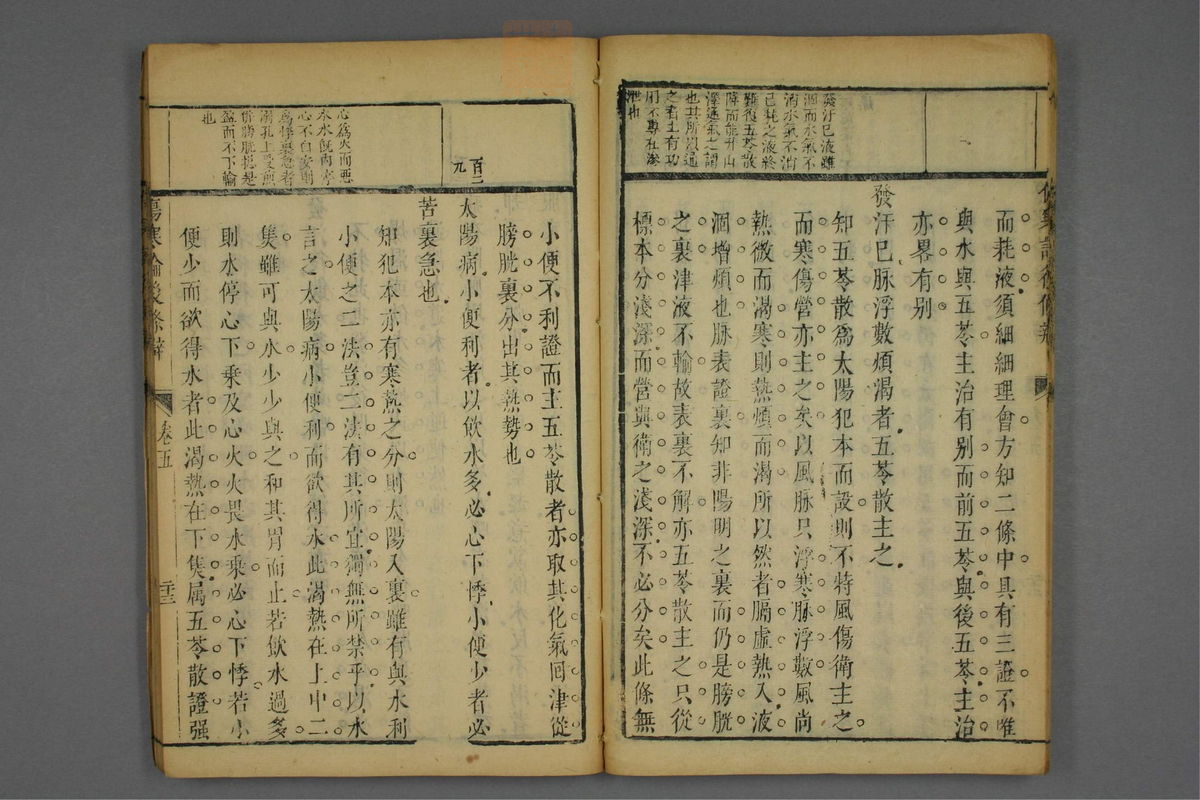 而耗液須細細理會方知二條中具有三證不唯
與水與五苓主治有別而前五苓與後五苓主治
亦畧有別
發汗已脉浮數煩渴者五苓散主之
知五苓散爲太陽犯本而設則不特風傷衛主之
而寒傷營亦主之矣以風脉只浮寒脉浮數風尚
熱微而渴寒則熱煩而渴所以然者膈虛熱入液
涸增煩也脉表證裏知非陽明之裏而仍是膀胱
之裏津液不輸故表裏不解亦五苓散主之只從
標本分淺深而營與衛之淺深不必分矣此條無
發汗已液雖
涸而水氣不
消水氣不消
已耗之液終
難復五苓散
降而能升山
澤通氣之謂
也其所以通
之者土有功
用不專在滲
泄也
小便不利證而主五苓散者亦取其化氣回津從
膀胱裏分出其熱勢也
百二
九
太陽病小便利者以飲水多必心下悸小便少者必
苦裏急也
知犯本亦有寒熱之分則太陽入裏雖有與水利
小便之二法豈二法有其所宜獨無所禁乎以水
言之太陽病小便利而欲得水此渴熱在上中二
焦雖可與水少少與之和其胃而止若飲水過多
則水停心下乘及心火火畏水乘必心下悸若小
便少而欲得水者此渴熱在下焦属五苓散證强
心爲火而惡
水水旣內停
心不自安則
爲悸裏急者
溺孔上受煎
併膀胱總是
盛而不下輸
也
傷寒論後條辯
卷五
二十三